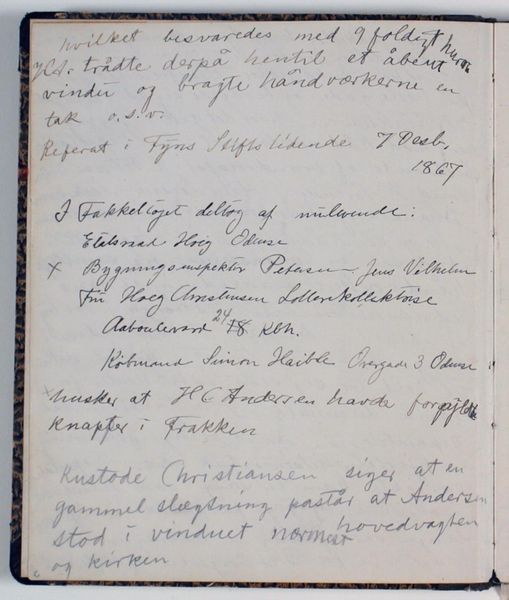 hvilket besvaredes med 9 foldigt hurra
H.C.A. trådte derpå hentil et åbent
vindu og bragte håndværkerne en
tak o.s.v.
Referat i Fyns Stifts tidende 7 Desb.
1867
I Fakkeltoget deltog af nulevende:
Etatsraad Høeg Odense
x Bygningsinspektør Petersen – Jens Vilhelm
Frú Hoeg Christensen Lotterikollektrise
Aaboulevard 24 18 Kbh.
Købmand Simon Haible Overgade 3 Odense
x husker at H C Andersen havde forgyldte
knapper i Frakken
Kustode Christiansen siger at en
gammel slægtning påstår at Andersen
stod i vinduet nærmest hovedvagten
og kirken